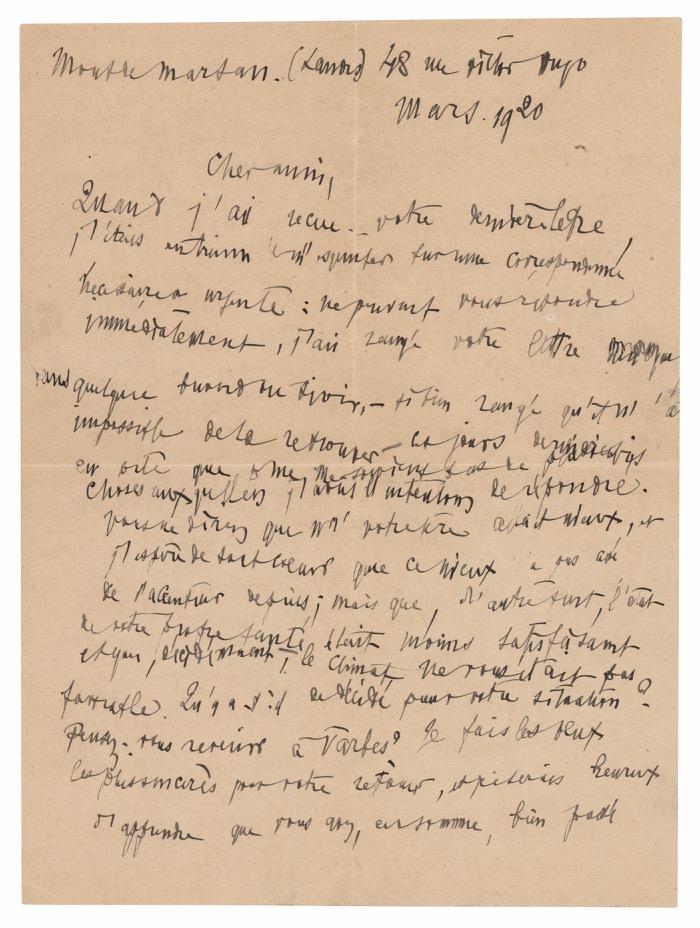 Mont de Marsan. (Landes) 48 rue Victor Hugo
Mars. 1920
Cher ami,
Quand j'ai reçu votre dernière lettre,
j'étais entrain sur une correspondance
nécessaire urgente : ne pouvant vous répondre
immédiatement, j'ai rangé votre lettre
dans quelque buvard ou tiroir, - si bien rangé qu'il m'a
impossible de la retrouver ces jours derniers
en sorte que me pas de
choses auxquelles j'avais l'intention de répondre.
Vous me disiez que Mr votre père allait mieux, et
j'espère de tout coeur que ce mieux n'a pas
de s'accentuer depuis ; mais que, d'autre part, l'état
de votre propre santé était moins satisfaisant
et que, décidément, le climat ne vous était pas
favorable. Qu'a-t-il décidé pour votre situation ?
Pensez-vous revenir à Tarbes ? Je fais les voeux
les plus sincères pour votre retour, et je serais heureux
d'apprendre que vous avez, en somme, bien passé